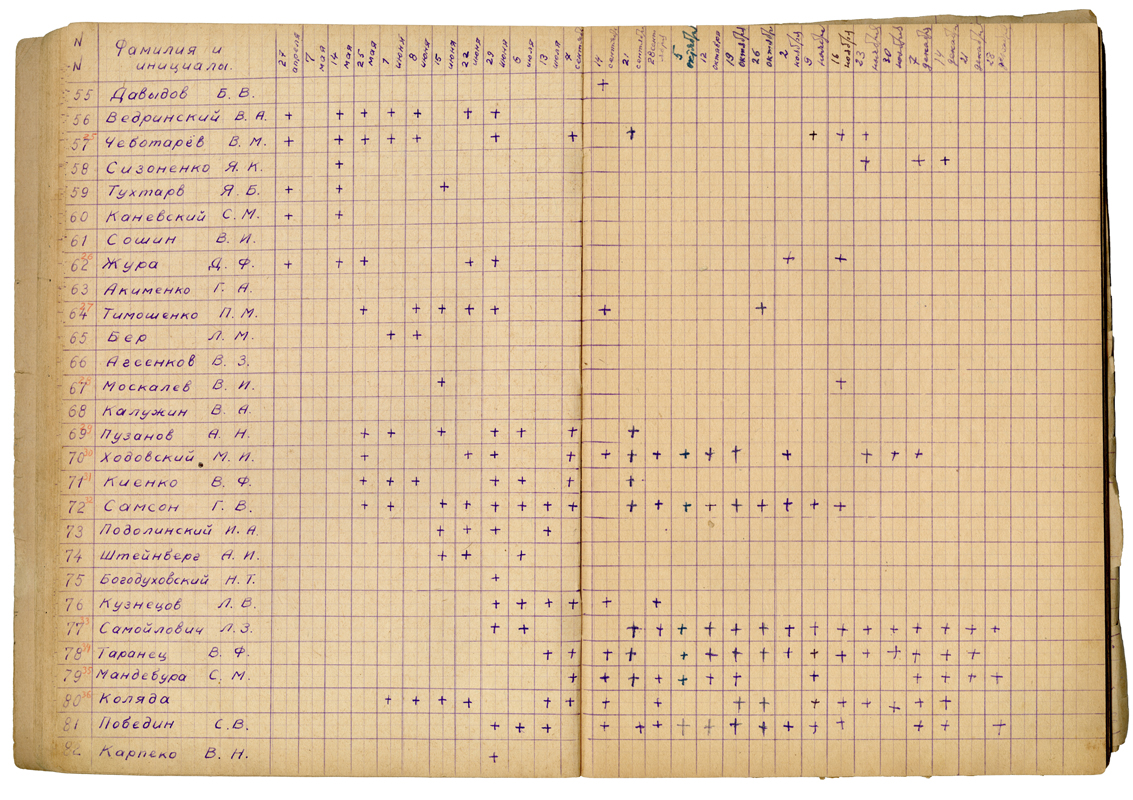 N N
Фамилия и
инициалы.
27 апреля
7 мая
14 мая
25 мая
7 июня
8 июня
15 июня
22 июня
29 июня
6 июля
13 июля
14
21 сентября
5 октября
12 октября
19 октября
26 октября
2 ноября
9 ноября
16 ноября
23 ноября
30 ноября
7 декабря
14
21
55 Давыдов Б. В.
56 Ведринский В. А.
57 25 Чеботарёв В. М.
58 Сизоненко Я. К.
59 Тухтарв Я. Б.
60 Каневский С. М.
61 Сошин В. И.
62 26 Жура Д. Ф.
63 Акименко Г. А.
64 27 Тимошенко П. М.
65 Бер Л. М.
66 Агсенков В. З.
67 28 Москалев В. И.
68 Калужин В. А.
69 29 Пузанов А. Н.
70 30 Ходовский М. И.
71 31 Киенко В. Ф.
72 32 Самсон Г. В.
73 Подолинский И. А.
74 Штейнверг А. И.
75 Богодуховский Н. Т.
76 Кузнецов Л. В.
77 33 Самойлович Л. З.
78 34 Таранец В. Ф.
79 35 Мандебура С. М.
80 36 Коляда
81 Победин С. В.
82 Карпеко В. Н.